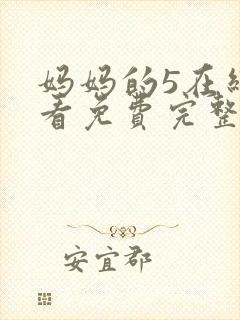 妈妈的5在线
看免费完整
安宜郡